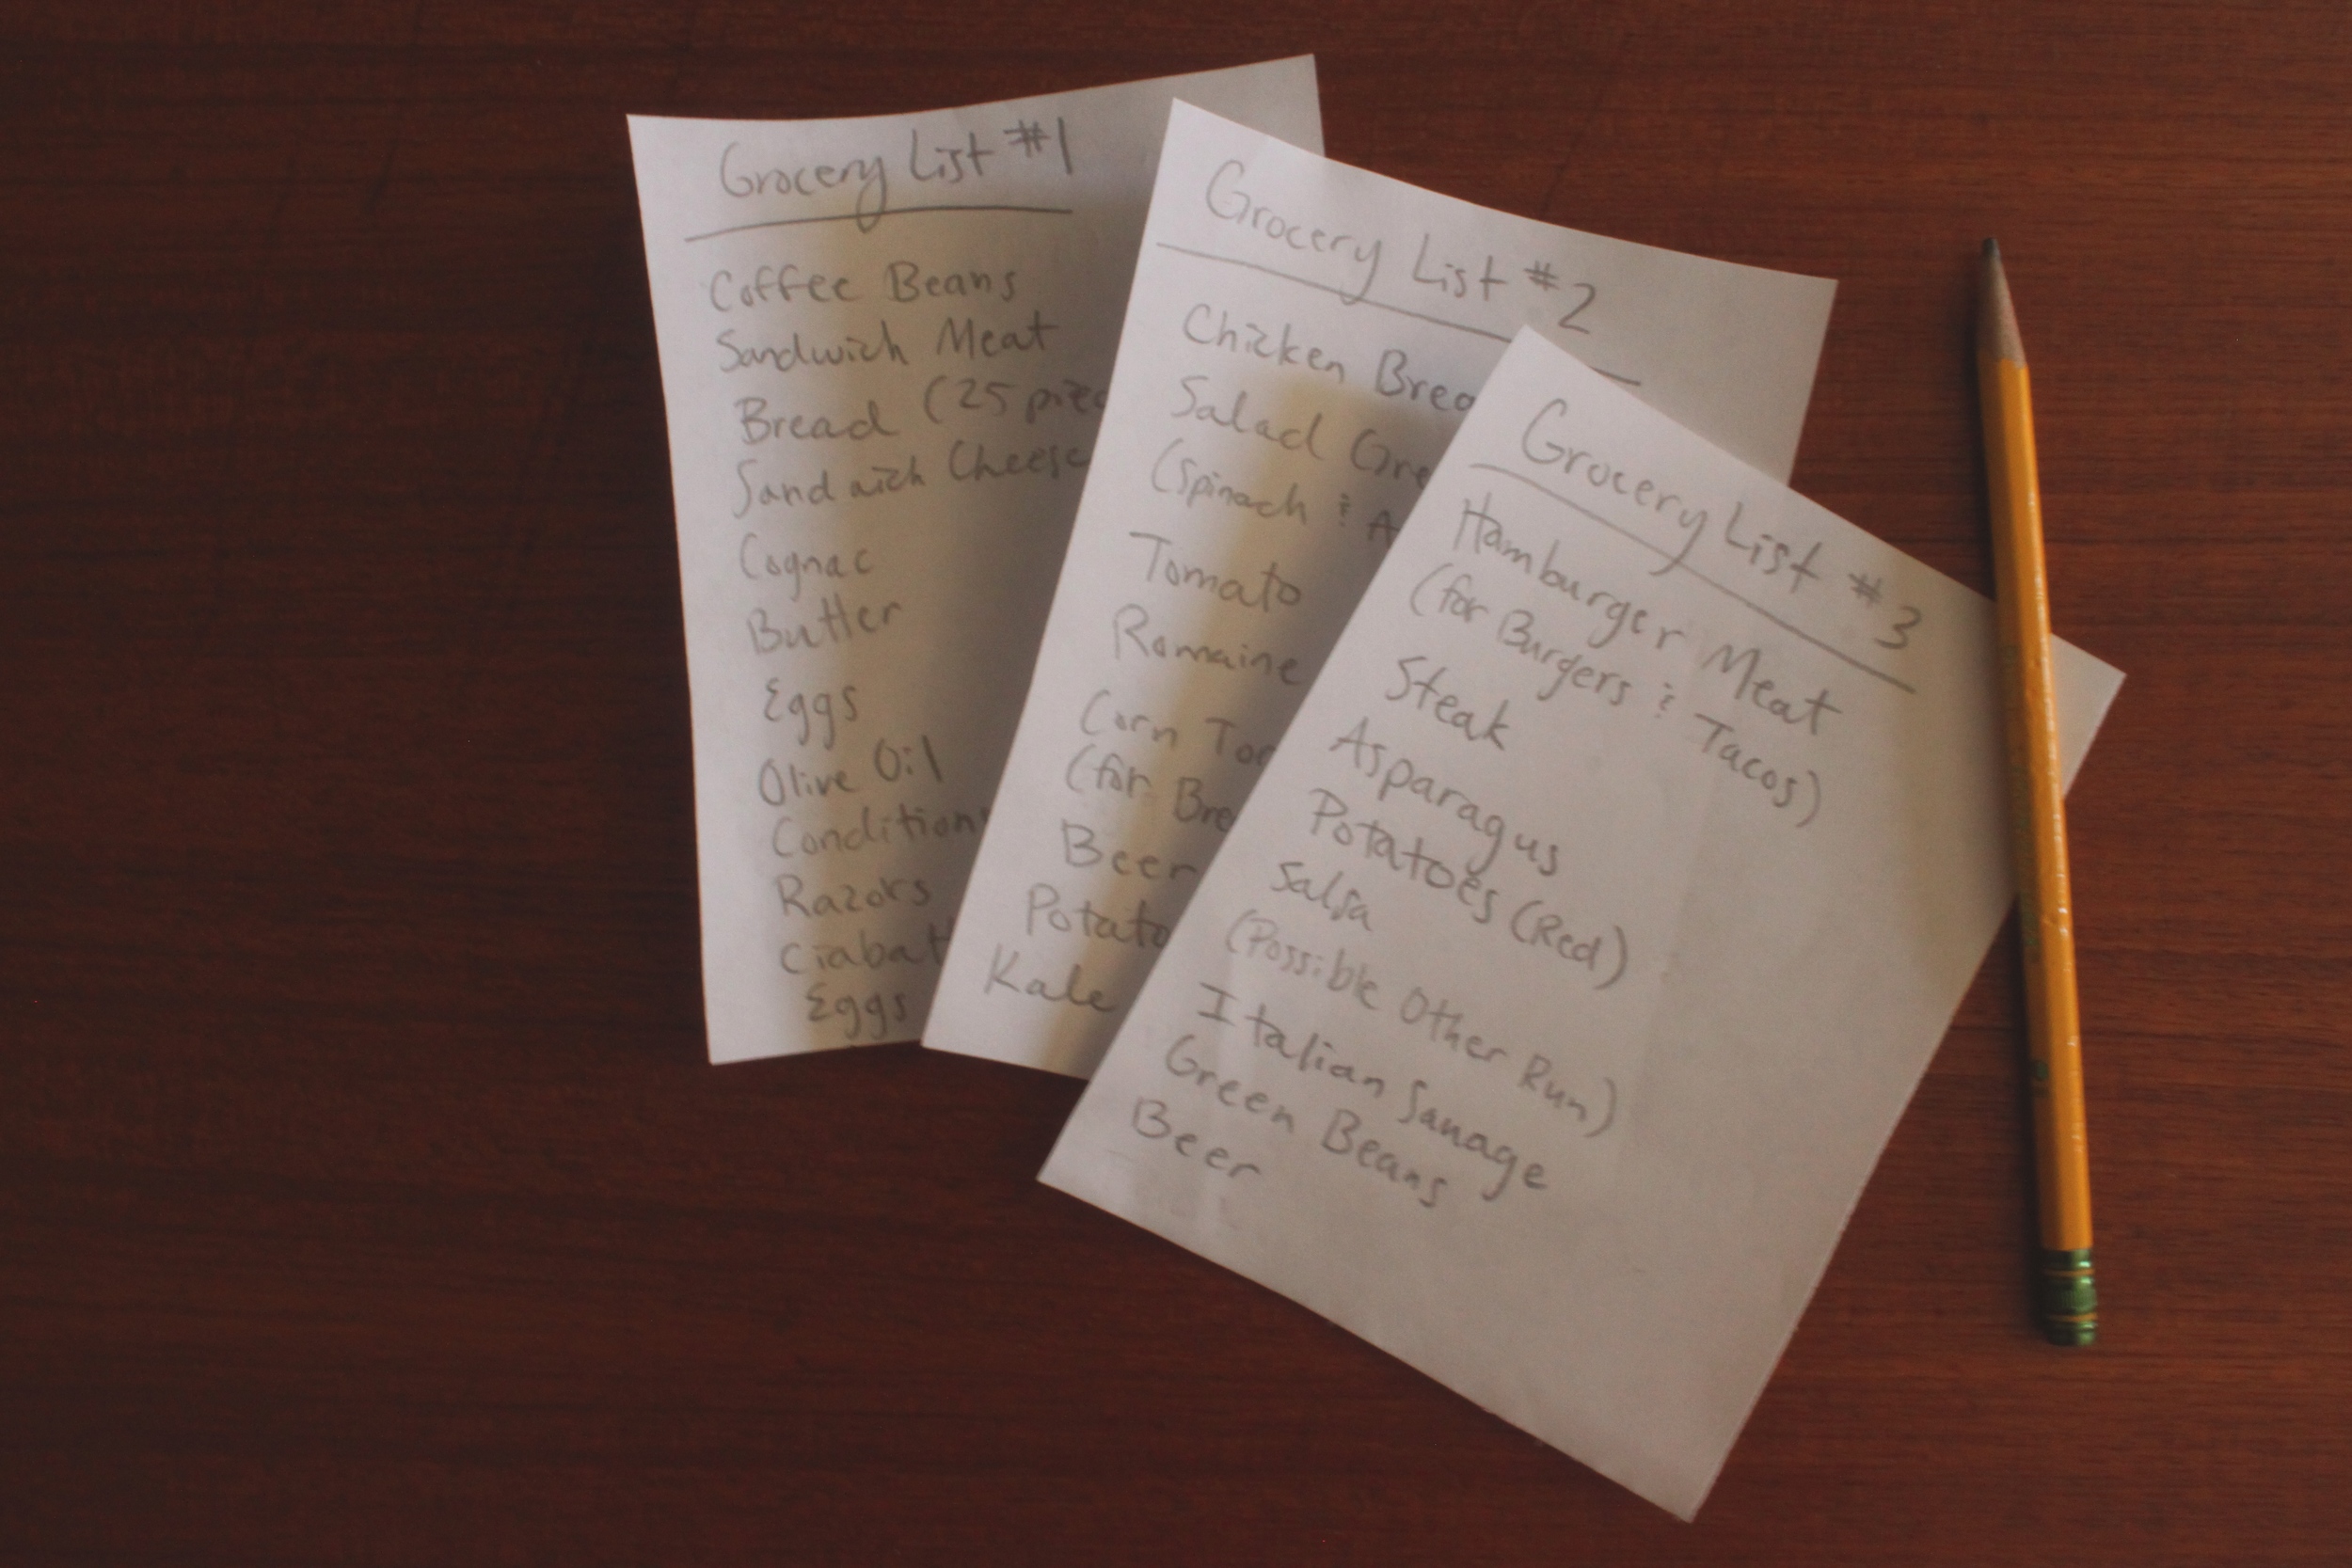 Grocery List #1
Coffee Beans
Sandwich Meat
Bread (25 piec
Sandwich Cheese
Cognac
Butter
Eggs
Olive Oil
Condition
Razors
Ciabat
Eggs
Grocery List #2
Chicken Brea
Salad Gre
(Spinach & A
Tomato
Romaine
Corn Tor
(for Bre
Beer
Potato
Kale
Grocery List #3
Hamburger Meat
(for Burgers & Tacos)
Steak
Asparagus
Potatoes (Red)
Salsa
(Possible Other Run)
Italian Sausage
Green Beans
Beer